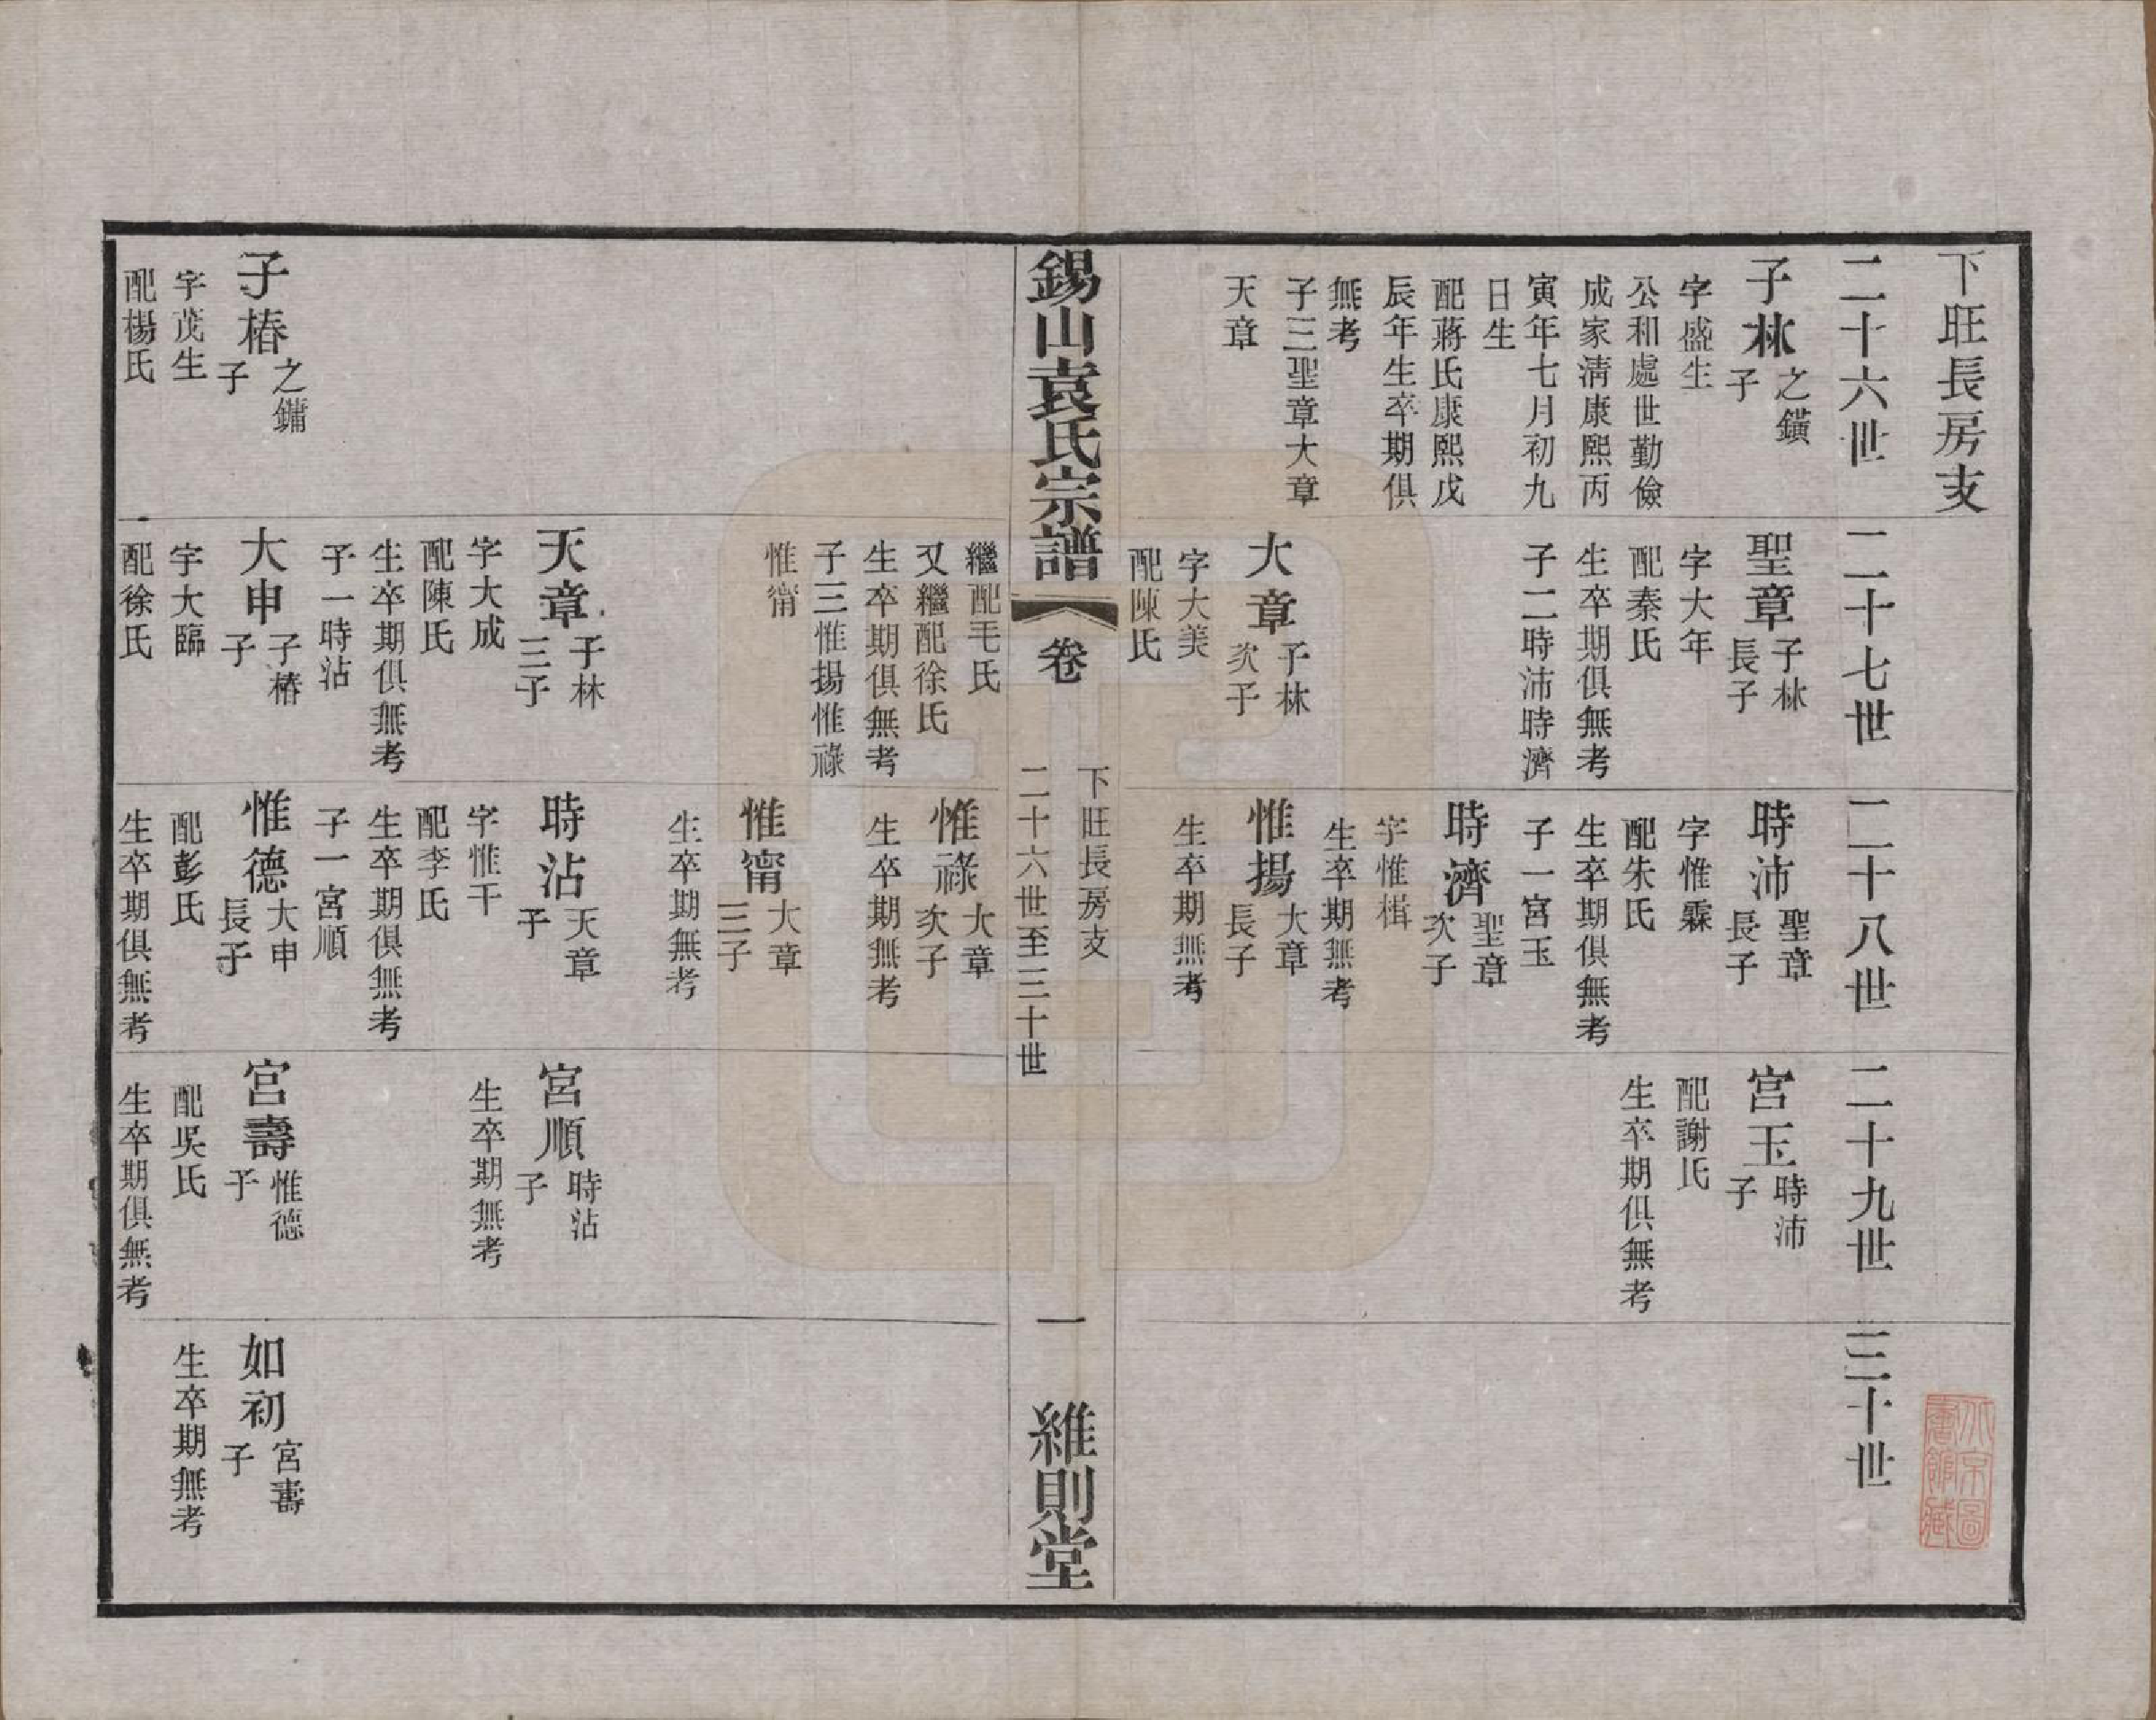 下旺長房支
二十六世
子林
之鐄
子
字盛生
公和處世勤儉
成家清康熙丙
寅年七月初九
日生
配蔣氏康熙戊
辰年生卒期俱
無考
子三聖章大章
天章
二十七世
聖章
子林
長子
字大年
配秦氏
生卒期俱無考
子二時沛時濟
大章
子林
次子
字大美
配陳氏
二十八世
時沛
聖章
長子
字惟霖
配朱氏
生卒期俱無考
子一宮玉
時濟
聖章
次子
字惟楫
生卒期無考
惟揚
大章
長子
生卒期無考
二十九世
宮玉
時沛
子
配謝氏
生卒期俱無考
三十世
錫山袁氏宗譜
卷
下旺長房支
二十六世至三十世
一
維則堂
子椿
之鏞
子
字茂生
配楊氏
繼配毛氏
又繼配徐氏
生卒期俱無考
子三惟揚惟祿
惟甯
天章
子林
三子
字大成
配陳氏
生卒期俱無考
子一時沾
大申
子椿
子
字大臨
配徐氏
惟祿
大章
次子
生卒期無考
惟甯
大章
三子
生卒期無考
時沾
天章
子
字惟干
配李氏
生卒期俱無考
子一宮順
惟德
大申
長子
配彭氏
生卒期俱無考
宮順
時沾
子
生卒期無考
宮壽
惟德
子
配吳氏
生卒期俱無考
如初
宮壽
子
生卒期無考